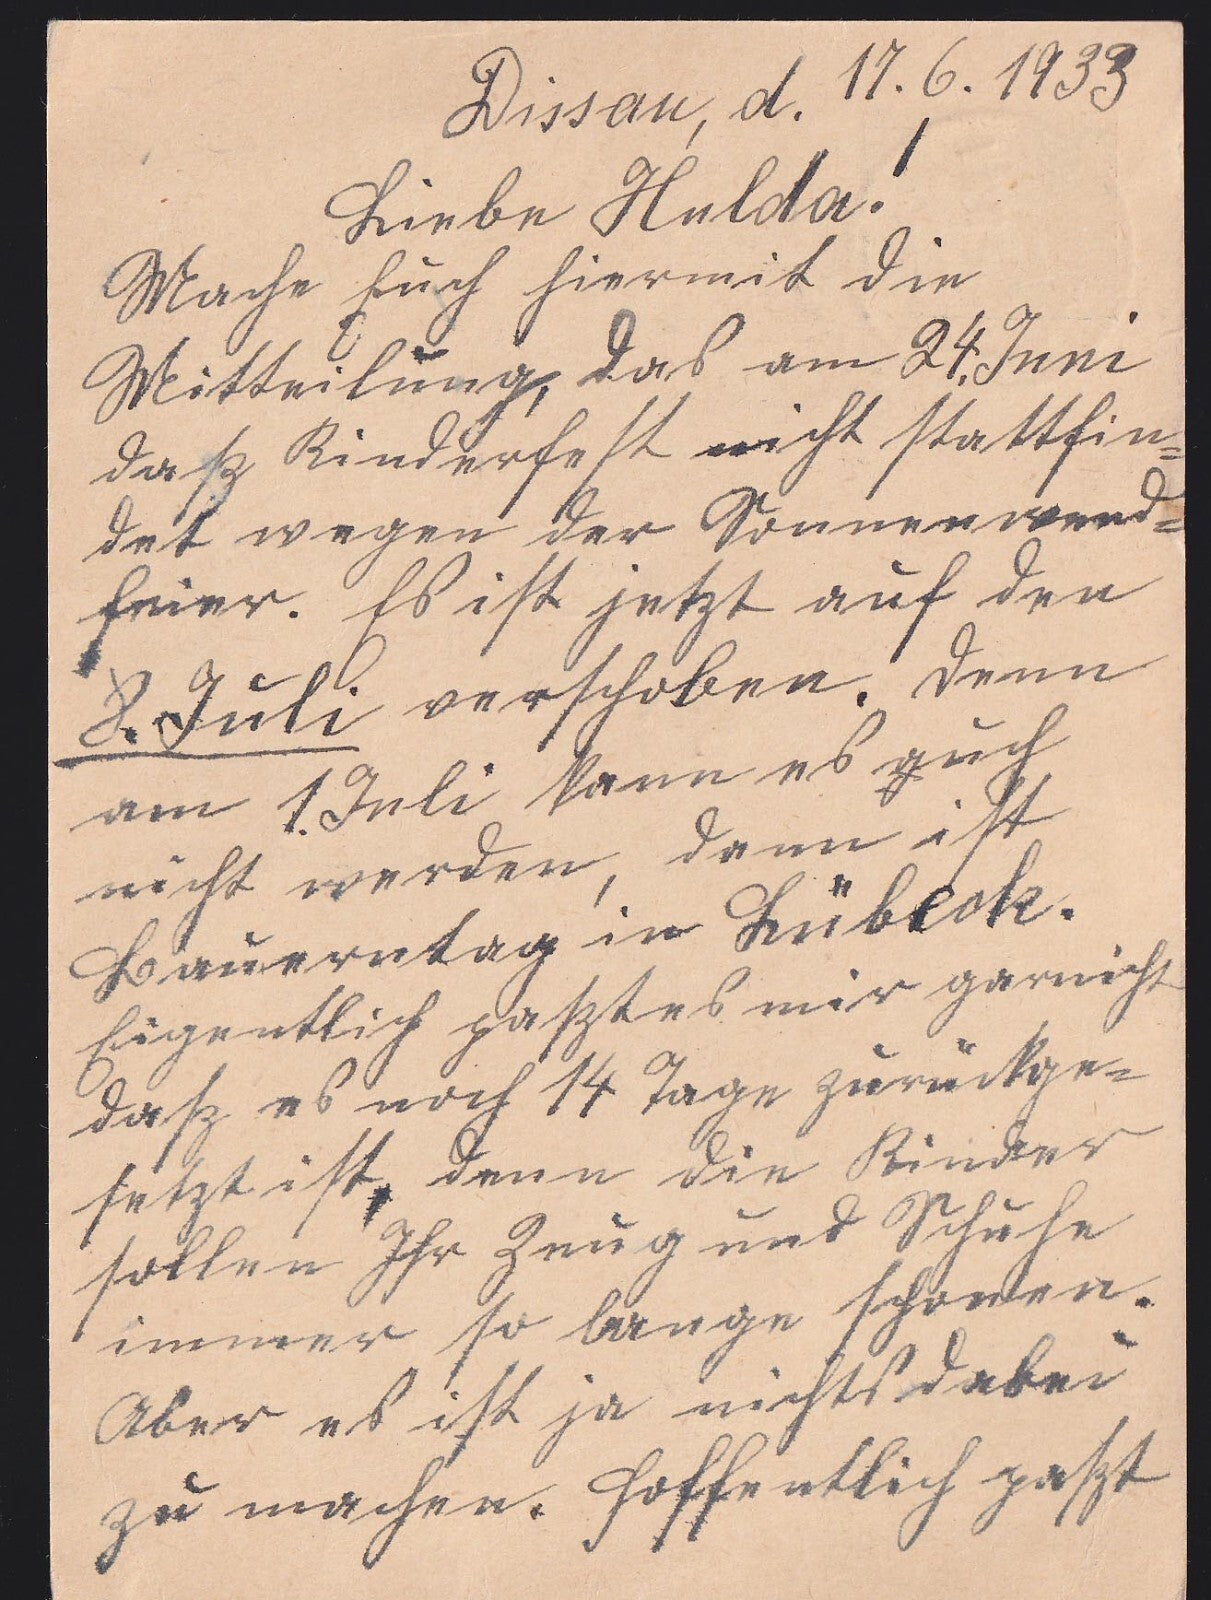 Dissau, d. 17.6.1933
Liebe Hulda!
Mache Euch hiermit die
Mitteilung, das am 24. Juni
daß Kinderfest nicht stattfin=
det wegen der Sonnenwend=
feier. Es ist jetzt auf den
8. Juli verschoben. Denn
am 1. Juli kann es auch
nicht werden, dann ist
Bauerntag in Lübeck.
Eigentlich paßt es mir garnicht
daß es noch 14 Tage zurückge=
setzt ist, denn die Kinder
sollen Ihr Zeug und Schuhe
immer so lange schonen.
Aber es ist ja nichts dabei
zu machen. Hoffentlich paßt